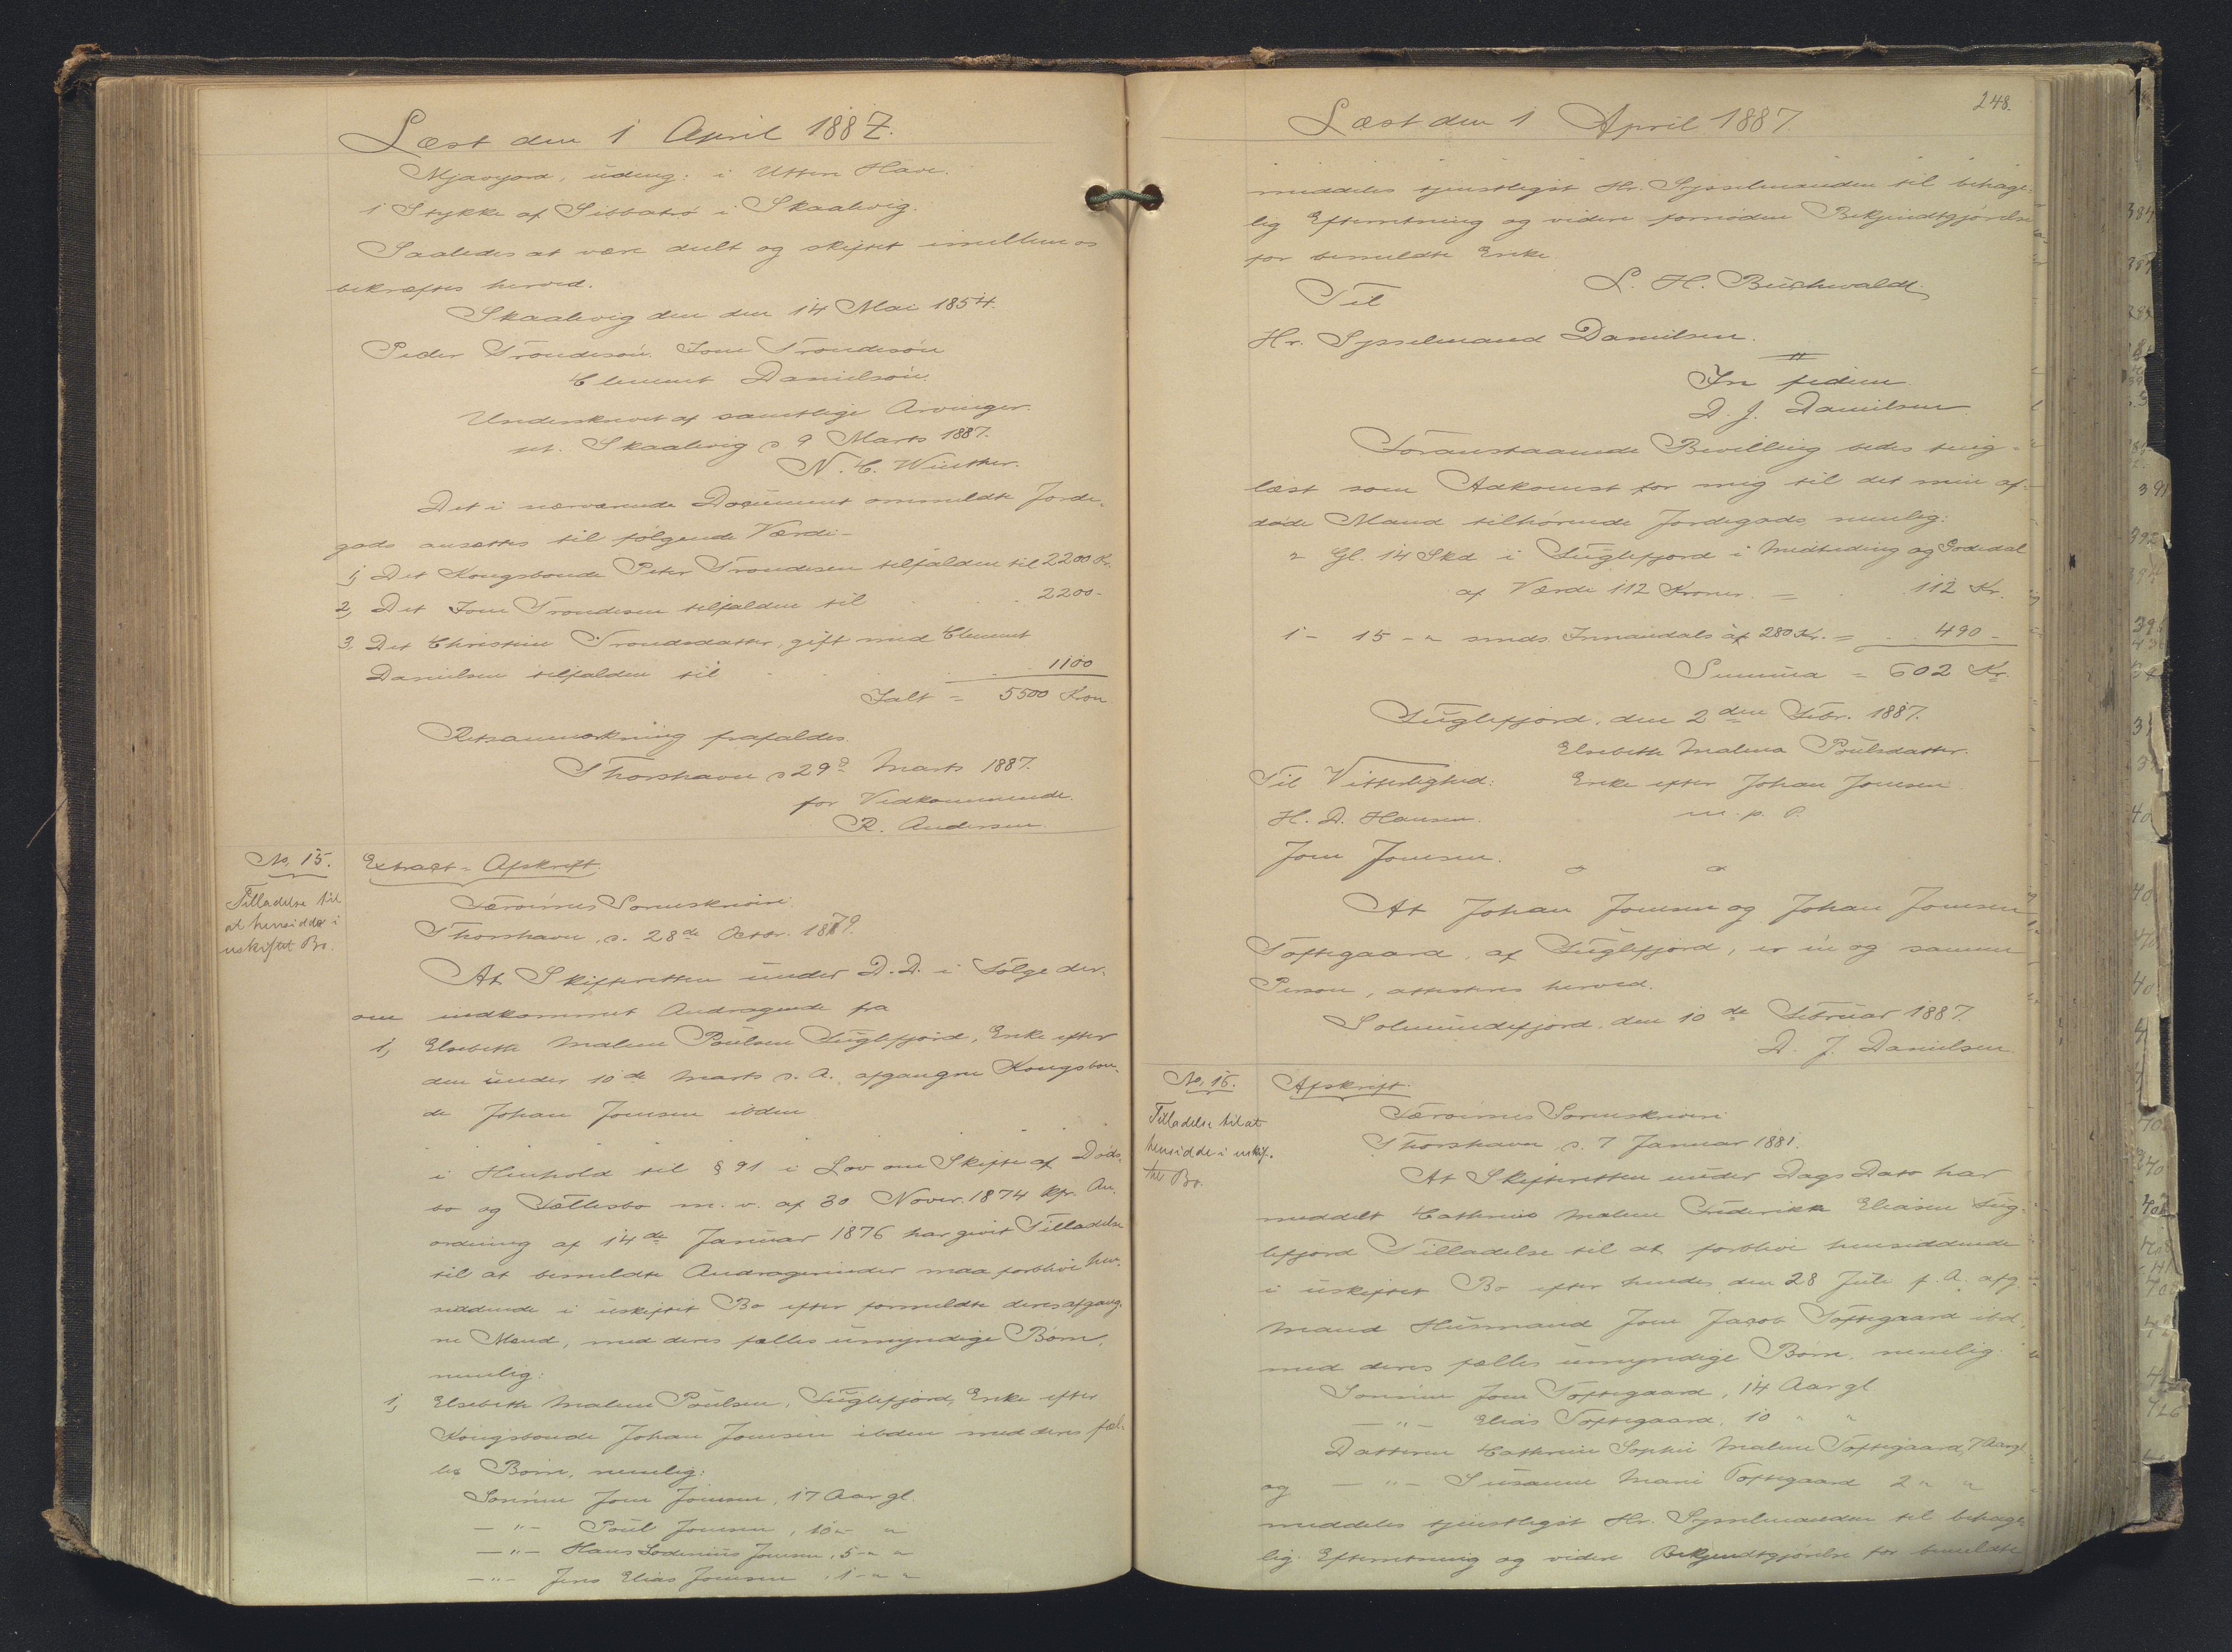 Læst den 1 April 1887.
Mjavgjord, udeng: i Utten Have.
1 Stykke af Sibbatrø i Skaalevig.
Saaledes at være deelt og skiftet imellem os
bekræftes herved.
Skaalevig den den 14 Mai 1854.
Peder Trondesøn. Joen Trondesøn
Clement Danielsøn.
Underskrevet af samtlige Arvinger.
ut. Skaalevig d 9 Marts 1887.
N. C. Winther.
Det i nærværende Document ommeldte Jorde-
gods ansættes til følgende Værdi-
1, Det Kongsbonde Peter Trondesen tilfalden til 2200 Kr.
2, Det Joen Trondesen tilfalden til 2200-
3, Det Christine Trondedatter, gift med Clement
Danielsen tilfalden til 1100
Ialt = 5500 Kron
Retsanmærkning frafaldes.
Thorshavn d 29d Marts 1887.
for Vedkommende.
R. Andersen.
No. 15.
Tilladelse til
at hensidde i
uskiftet Bo.
Extract-Afskrift.
Færøernes Sorenskriveri.
Thorshavn, d. 28de Octbr. 1879.
At Skifteretten under D. D. i Følge der-
om indkommet Andragende fra
1, Elsebeth Malene Poulsen Fuglefjord, Enke efter
den under 10de Marts d. A. afgangne Kongsbon-
de Johan Joensen ibden
i Henhold til § 91 i Lov om Skifte af Døds-
bo og Fællesbo m. v. af 30 Novbr. 1874 kfr. An-
ordning af 14de Januar 1876 har givet Tilladelse
til at bemeldte Andragerinder maa forblive hen-
siddende i uskiftet Bo efter formeldte deres afgang-
ne Mænd, med deres fælles umyndige Børn,
nemlig:
1, Elsebeth Malene Poulsen, Fuglefjord, Enke efter
Kongsbonde Johan Joensen ibden med deres fæl-
les Børn, nemlig:
Sønnen Joen Joensen, 17 Aar gl.
- " - Poul Joensen, 10 " "
- " - Hans Lodenius Joensen, 5 - " "
- " - Jens Elias Joensen, 1 - " "
248.
Læst den 1 April 1887.
meddeles tjenstligst Hr. Sysselmanden til behage-
lig Efterretning og videre fornøden Bekjendtgjørelse
for bemeldte Enke.
L. H. Buchwaldt
Til
Hr. Sysselmand Danielsen.
"
In fidem
D. J. Danielsen
Foranstaaende Bevilling bedes ting-
læst som Adkomst for mig til det min af-
døde Mand tilhørende Jordegods, nemlig:
" Gl. 14 Skd i Fuglefjord i Midteding og Godedal
af Værde 112 Kroner. = 112 Kr.
1 - 15 - " smds. Innandals af 280 Kr. = 490 -
Summa = 602 Kr.
Fuglefjord, den 2den Febr. 1887.
Elsebeth Malena Poulsdatter.
Til Vitterlighed: Enke efter Johan Joensen
H. D. Hansen. m. p. P.
Joen Joensen.
At Johan Joensen og Johan Joensen
Toftegaard, af Fuglefjord, er én og samme
Person, attesteres herved.
Solmundefjord, den 10de Februar 1887.
D. J. Danielsen.
No. 16.
Tilladelse til at
hensidde i uskif-
tet Bo.
Afskrift.
Færøernes Sorenskriveri
Thorshavn d. 7 Januar 1881.
At Skifteretten under Dags Dato har
meddelt Cathrine Malene Frederikke Eliasen Fug-
lefjord Tilladelse til at forblive hensiddende
i uskiftet Bo efter hendes den 28 Juli f. A. afg.
Mand Husmand Joen Jacob Toftegaard ibd.
med deres fælles umyndige Børn, nemlig:
Sønnen Joen Toftegaard, 14 Aar gl.
- " - Elias Toftegaard, 10 " "
Datteren Cathrine Sophie Malene Toftegaard, 7 Aar gl.
og - " - Susanne Marie Toftegaard 2 " "
meddeles tjenstligst Hr. Sysselmanden til behage-
lig Efterretning og videre Bekjendtgjørelse for bemeldte